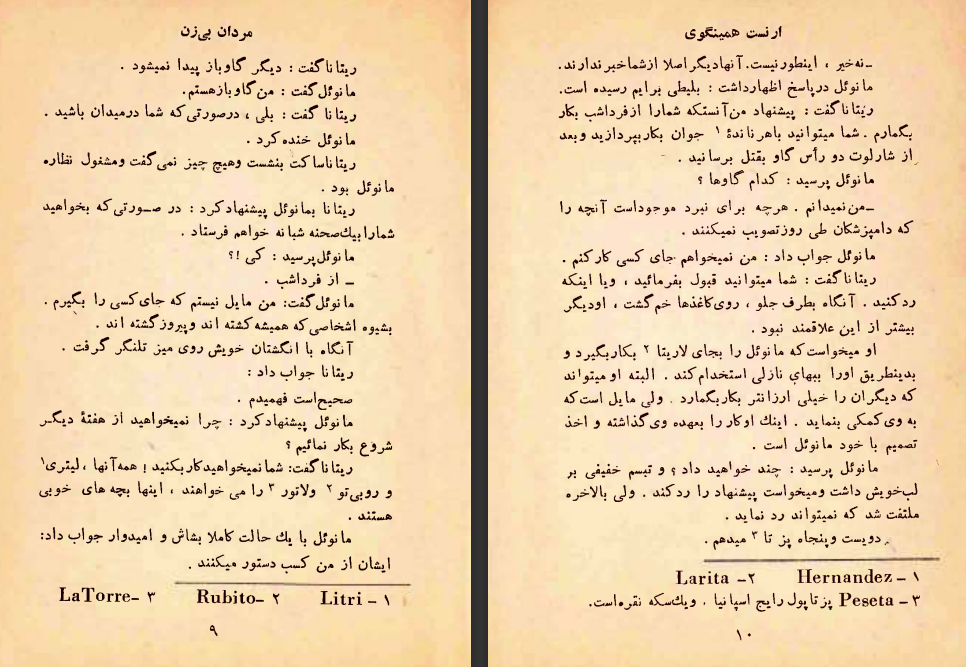 مردان بی‌زن
ریتاناگفت : دیگر گاوباز پیدا نمیشود .
مانوئل‌گفت : من‌گاوبازهستم.
ریتانا گفت : بلی ، درصورتی‌که شما درمیدان باشید .
مانوئل خنده کرد .
ریتاناساکت بنشست وهیچ چیز نمی‌گفت ومشغول نظاره
مانوئل بود .
ریتانا بمانوئل پیشنهادکرد : در صـورتی‌که بخواهید
شمارابیك‌صحنه شبانه خواهم فرستاد .
مانوئل‌پرسید : کی !؟
ــ از فرداشب .
مانوئل‌گفت: من مایل نیستم که جای‌کسی را بگیرم .
بشیوه اشخاصی‌که همیشه‌کشته اند وپیروزگشته اند .
آنگاه با انگشتان خویش روی میز تلنگر گرفت .
ریتانا جواب داد :
صحیح‌است فهمیدم .
مانوئل پیشنهادکرد : چرا نمیخواهید از هفتهٔ دیگـر
شروع بکار نمائیم ؟
ریتاناگفت: شما‌نمیخواهیدکاربکنید ! همه‌آنها ، لیتری۱
و روبی‌تو ۲ ولاتور ۳ را می خواهند ، اینها بچه های خوبی
هستند .
مانوئل با یك حالت کاملا بشاش و امیدوار جواب داد:
ایشان از من کسب دستور میکنند .
LaTorre- ۳ Rubito- ۲ Litri - ۱
۹
ارنست همینگوی
ــنه‌خیر ، اینطورنیست. آنهادیگراصلا ازشماخبرندارند.
مانوئل درپاسخ اظهارداشت : بلیطی برایم رسیده است.
ریتاناگفت : پیشنهاد من‌آنستکه شمارا ازفرداشب بکار
بگمارم . شما میتوانید باهرناندهٔ ۱ جوان بکاربپردازید وبعد
از شارلوت دو رأس گاو بقتل برسانید .
مانوئل پرسید : کدام گاوها ؟
ــ‌من‌نمیدانم . هرچه برای نبرد موجوداست آنچه را
که دامپزشکان طی روزتصویب نمیکنند .
مانوئل جواب داد : من نمیخواهم جای کسی کارکنم .
ریتاناگفت : شما میتوانید قبول بفرمائید ، ویا اینکه
ردکنید . آنگاه بطرف جلو ، روی‌کاغذها خم‌گشت ، اودیگر
بیشتر از این علاقمند نبود .
او میخواست‌که مانوئل را بجای لاریتا ۲ بکاربگیرد و
بدینطریق اورا ببهای نازلی استخدام‌کند . البته اومیتواند
که دیگران را خیلی ارزانتر بکاربگمارد . ولی مایل است‌که
به وی‌کمکی بنماید . اینك اوکار را بعهده وی‌گذاشته و اخذ
تصمیم با خود مانوئل است .
مانوئل پرسید : چند خواهید داد ؟ و تبسم خفیفی بر
لب‌خویش داشت ومیخواست پیشنهاد را ردکند . ولی بالاخره
ملتفت شد که نمیتواند رد نماید .
دویست وپنجاه پز تا ۳ میدهم .
Larita -۲ Hernandez - ۱
۳ - Peseta پزتاپول رایج اسپانیا . ویك‌سکه نقره‌است.
۱۰